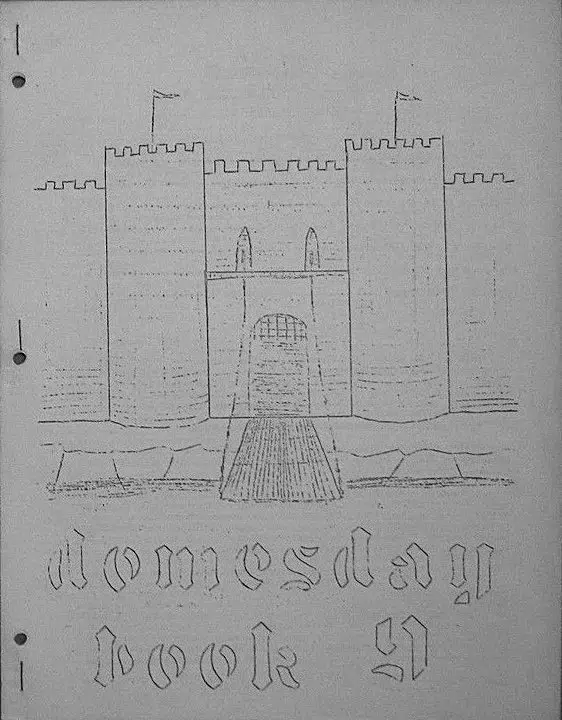 domesday
book 9